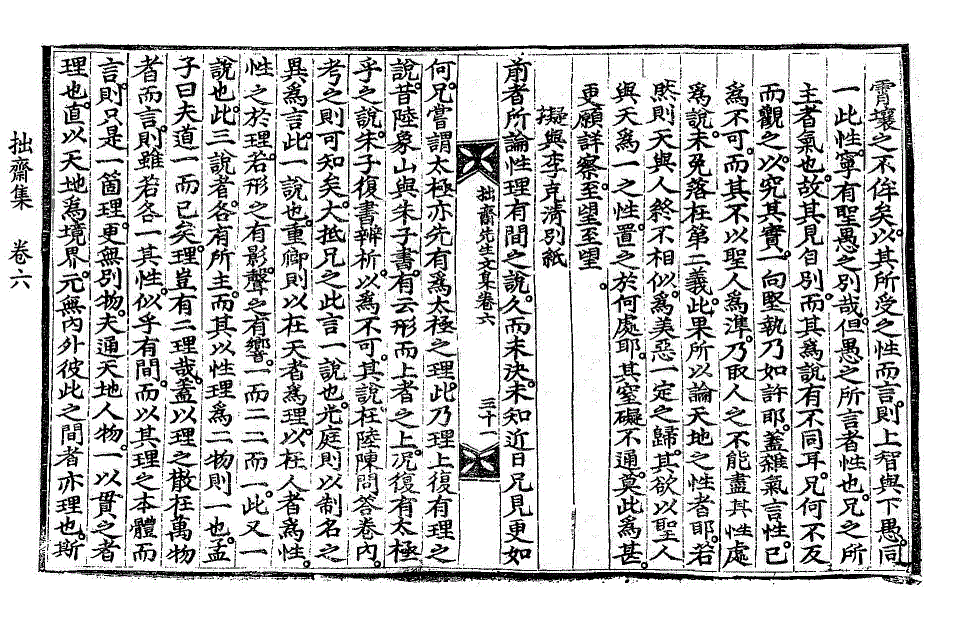 霄壤之不侔矣以其所受之性而言則上智與下愚同
一此性寧有聖愚之別哉但愚之所言者性也兄之所
主者氣也故其見自別而其爲說有不同耳兄何不反
而觀之以究其實一向堅執乃如許耶蓋雜氣言性已
爲不可而其不以聖人爲準乃取人之不能盡其性處
爲說未免落在第二義此果所以論天地之性者耶若
然則天與人終不相似爲美惡一定之歸其欲以聖人
與天爲一之性置之於何處耶其窒礙不通莫此爲甚
更願詳察至望至望
擬與李克淸別紙
前者所論性理有間之說久而未決未知近日兄見更如
拙齋先生文集卷六 三十一
何兄嘗謂太極亦先有爲太極之理此乃理上復有理之
說昔陸象山與朱子書有云形而上者之上况復有太極
乎之說朱子復書辨析以爲不可其說在陸陳問答卷內
考之則可知矣大抵兄之此言一說也光庭則以制名之
異爲言此一說也重卿則以在天者爲理以在人者爲性
性之於理若形之有影聲之有響一而二二而一此又一
說也此三說者各有所主而其以性理爲二物則一也孟
子曰夫道一而已矣理豈有二理哉蓋以理之散在萬物
者而言則雖若各一其性似乎有間而以其理之本體而
言則只是一箇理更無別物夫通天地人物一以貫之者
理也直以天地爲境界元無內外彼此之間者亦理也斯
拙齋集 卷六